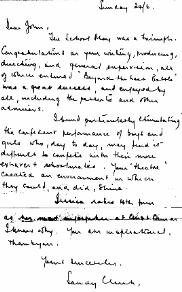 Sunday 20/6.
Dear John,
The School Play was a triumph.
Congratulations on your writing, producing,
directing, and general supervision, all
of which ensured "Beyond the
was a great success, and enjoyed by
all, including the parents and other
admirers.
I found particularly stimulating
the confident performance of boys and
girls who, day to day, may find it
difficult to compete with their more
extrovert schoolmates. Your "theatre"
created an environment in which
they could, and did, shine.
Jessica
as
I know why. You are inspirational.
Thankyou.
Yours sincerely,
Sandy